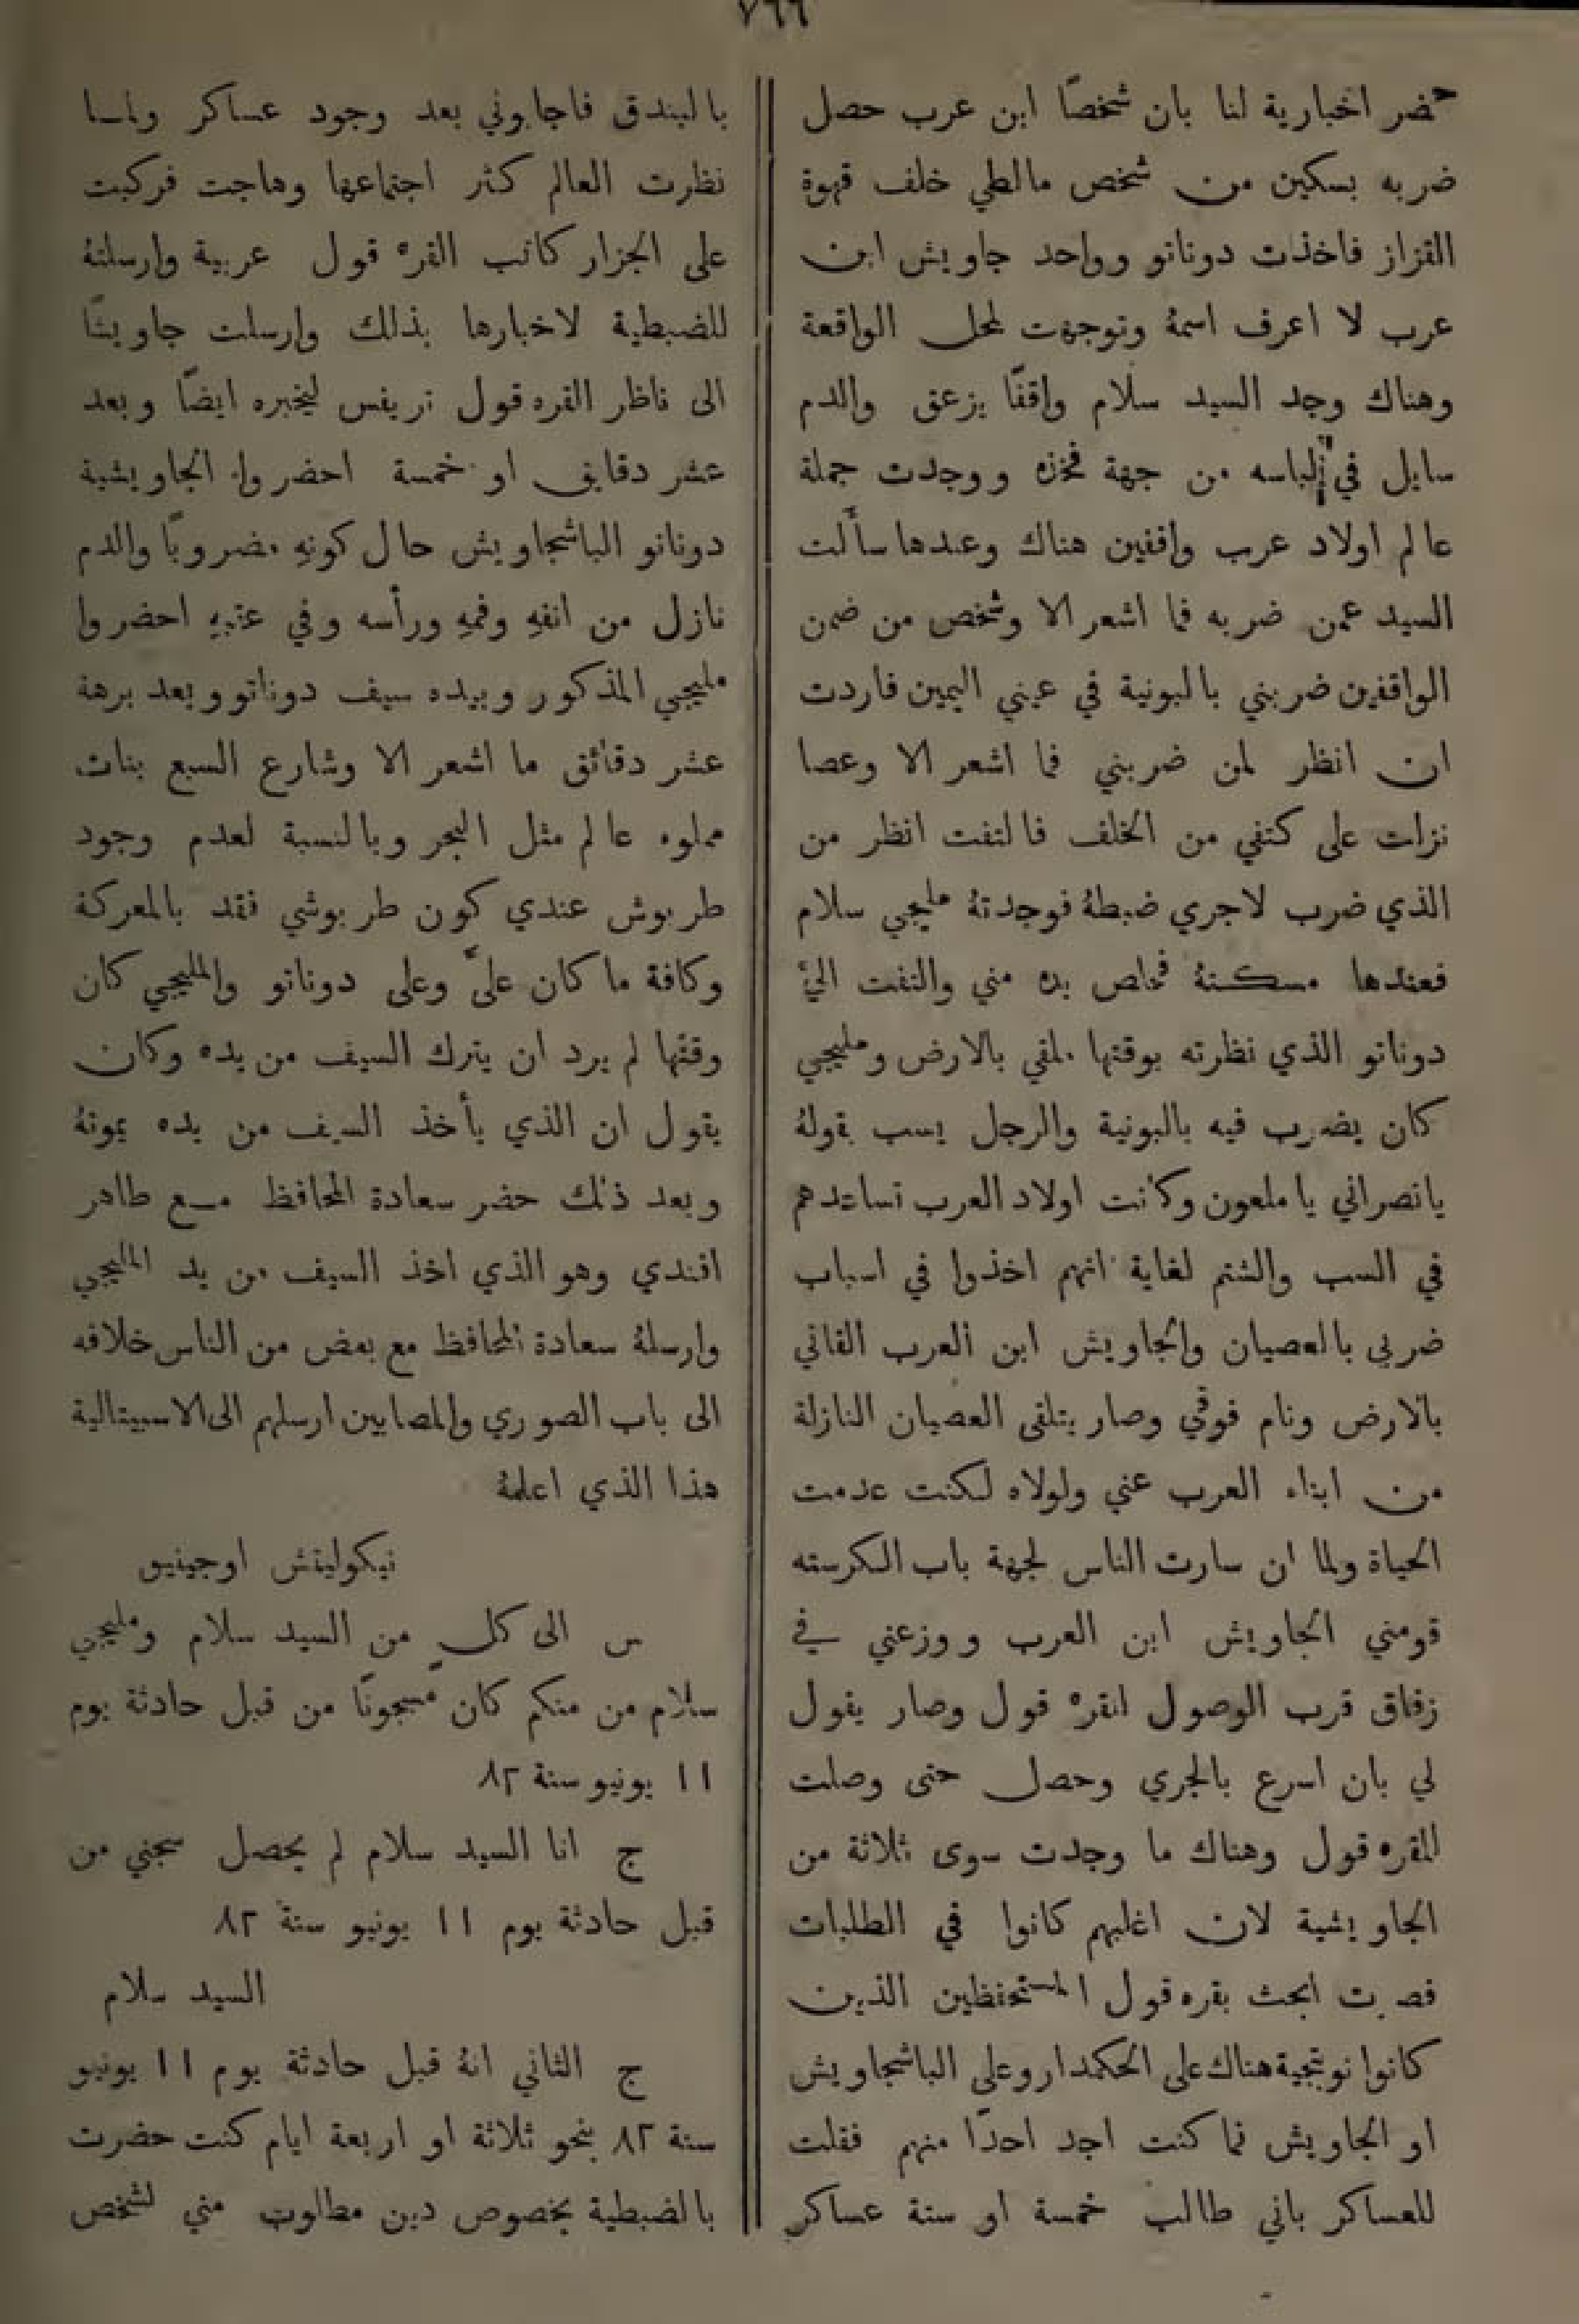 ٧٦٦
حضر اخبارية لنا بان شخصًا ابن عرب حصل
ضربه بسكين من شخص مالطي خلف قهوة
القزاز فاخذت دوناتو وواحد جاويش ابن
عرب لا اعرف اسمهُ وتوجهت لمحل الواقعة
وهناك وجد السيد سلام واقفًا يزعق والدم
سايل في لباسه من جهة فخذه ووجدت جملة
عالم اولاد عرب واقفين هناك وعندها سألت
السيد عمن ضربه فما اشعر الا وشخص من ضمن
الواقفين ضربني بالبونية في عيني اليمين فاردت
ان انظر لمن ضربني فما اشعر الا وعصا
نزلت على كتفي من الخلف فالتفت انظر من
الذي ضرب لاجري ضبطهُ فوجدتهُ مليجي سلام
فعندها مسكتهُ فخلص يده مني والتفت الى
دوناتو الذي نظرته بوقتها ملقي بالارض ومليجي
كان يضرب فيه بالبونية والرجل يسب بقولهُ
يا نصراني يا ملعون وكانت اولاد العرب تساعدهم
في السب والشتم لغاية انهم اخذوا في اسباب
ضربي بالعصيان والجاويش ابن العرب القاني
بالارض ونام فوقي وصار يتلقى العصيان النازلة
من ابناء العرب عني ولولاه لكنت عدمت
الحياة ولما ان سارت الناس لجهة باب الكرسته
قومني الجاويش ابن العرب ووزعني في
زقاق قرب الوصول لقره قول وصار يقول
لي بان اسرع بالجري وحصل حتى وصلت
القره قول وهناك ما وجدت سوى ثلاثة من
الجاويشية لان اغلبهم كانوا في الطلبات
فصرت ابحث بقره قول المستحفظين الذين
كانوا نوبتجية هناك على الحكمدار وعلى الباشجاويش
او الجاويش فما كنت اجد احدًا منهم فقلت
للعساكر باني طالب خمسة او ستة عساكر
بالبندق فاجابوني بعد وجود عساكر ولما
نظرت العالم كثر اجتماعها وهاجت فركبت
على الجزار كاتب القره قول عربية وارسلتهُ
للضبطية لاخبارها بذلك وارسلت جاويشًا
الى ناظر القره قول تريفس ليخبره ايضًا وبعد
عشر دقايق او خمسة احضروا الجاويشية
دوناتو الباشجاويش حال كونهِ مضروبًا والدم
نازل من انفهِ وفمهِ ورأسه وفي عقبهِ احضروا
مليجي المذكور وبيده سيف دوناتو وبعد برهة
عشر دقائق ما اشعر الا وشارع السبع بنات
مملوء عالم مثل البحر وبالنسبة لعدم وجود
طربوش عندي كون طربوشي فقد بالمعركة
وكافة ما كان عليَّ وعلى دوناتو والمليجي كان
وقتها لم يرد ان يترك السيف من يده وكان
يقول ان الذي يأخذ السيف من يده يموتهُ
وبعد ذلك حضر سعادة المحافظ مع طاهر
افندي وهو الذي اخذ السيف من يد المليجي
وارسلهُ سعادة المحافظ مع بعض من الناس خلافه
الى باب الصوري والمصابين ارسلهم الى الاسبيتالية
هذا الذي اعلمهُ
نيكوليتش اوجينيو
س الى كلٍ من السيد سلام ومليجي
سلام من منكم كان مسجونًا من قبل حادثة يوم
١١ يونيو سنة ٨٢
ج انا السيد سلام لم يحصل سجني من
قبل حادثة يوم ١١ يونيو سنة ٨٢
السيد سلام
ج الثاني انهُ قبل حادثة يوم ١١ يونيو
سنة ٨٢ بنحو ثلاثة او اربعة ايام كنت حضرت
بالضبطية بخصوص دين مطلوب مني لشخص